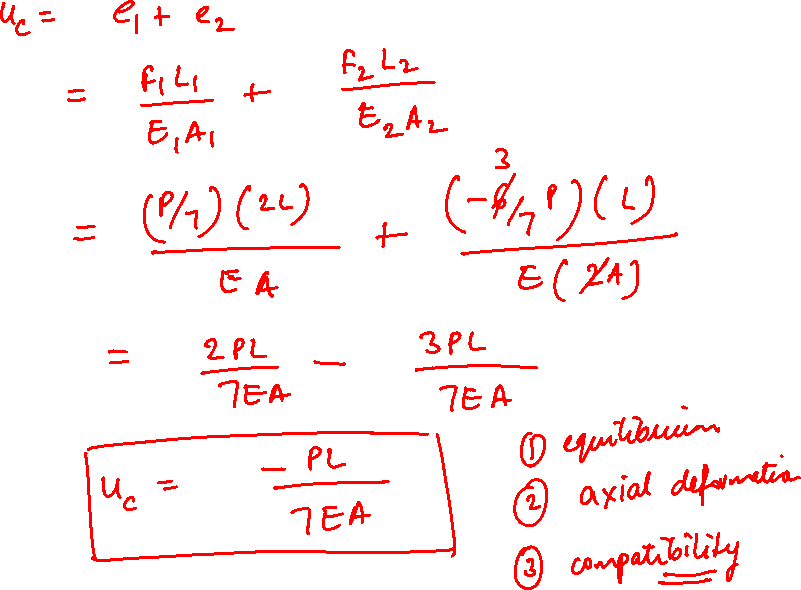 u_c = e_1 + e_2
= F_1 L_1 / E_1 A_1 + F_2 L_2 / E_2 A_2
= (P/7) (2L) / E A + (-6/7 P) (L) / E (2A)
3
= 2PL / 7EA - 3PL / 7EA
u_c = - PL / 7EA
① equilibrium
② axial deformation
③ compatibility